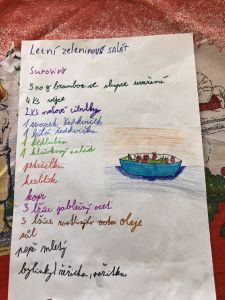 Letní zeleninový salát
Suroviny
500 g brambor ve slupce uvařené
4 ks vejce
2 ks cibulky
1 svazek ředkviček
1 bílá ředkvička
1 kedlubna
1 hlávkový salát
petrželka
kopr
3 lžíce jablečný ocet
3 lžíce oleje
sůl
pepř mletý
bylinky